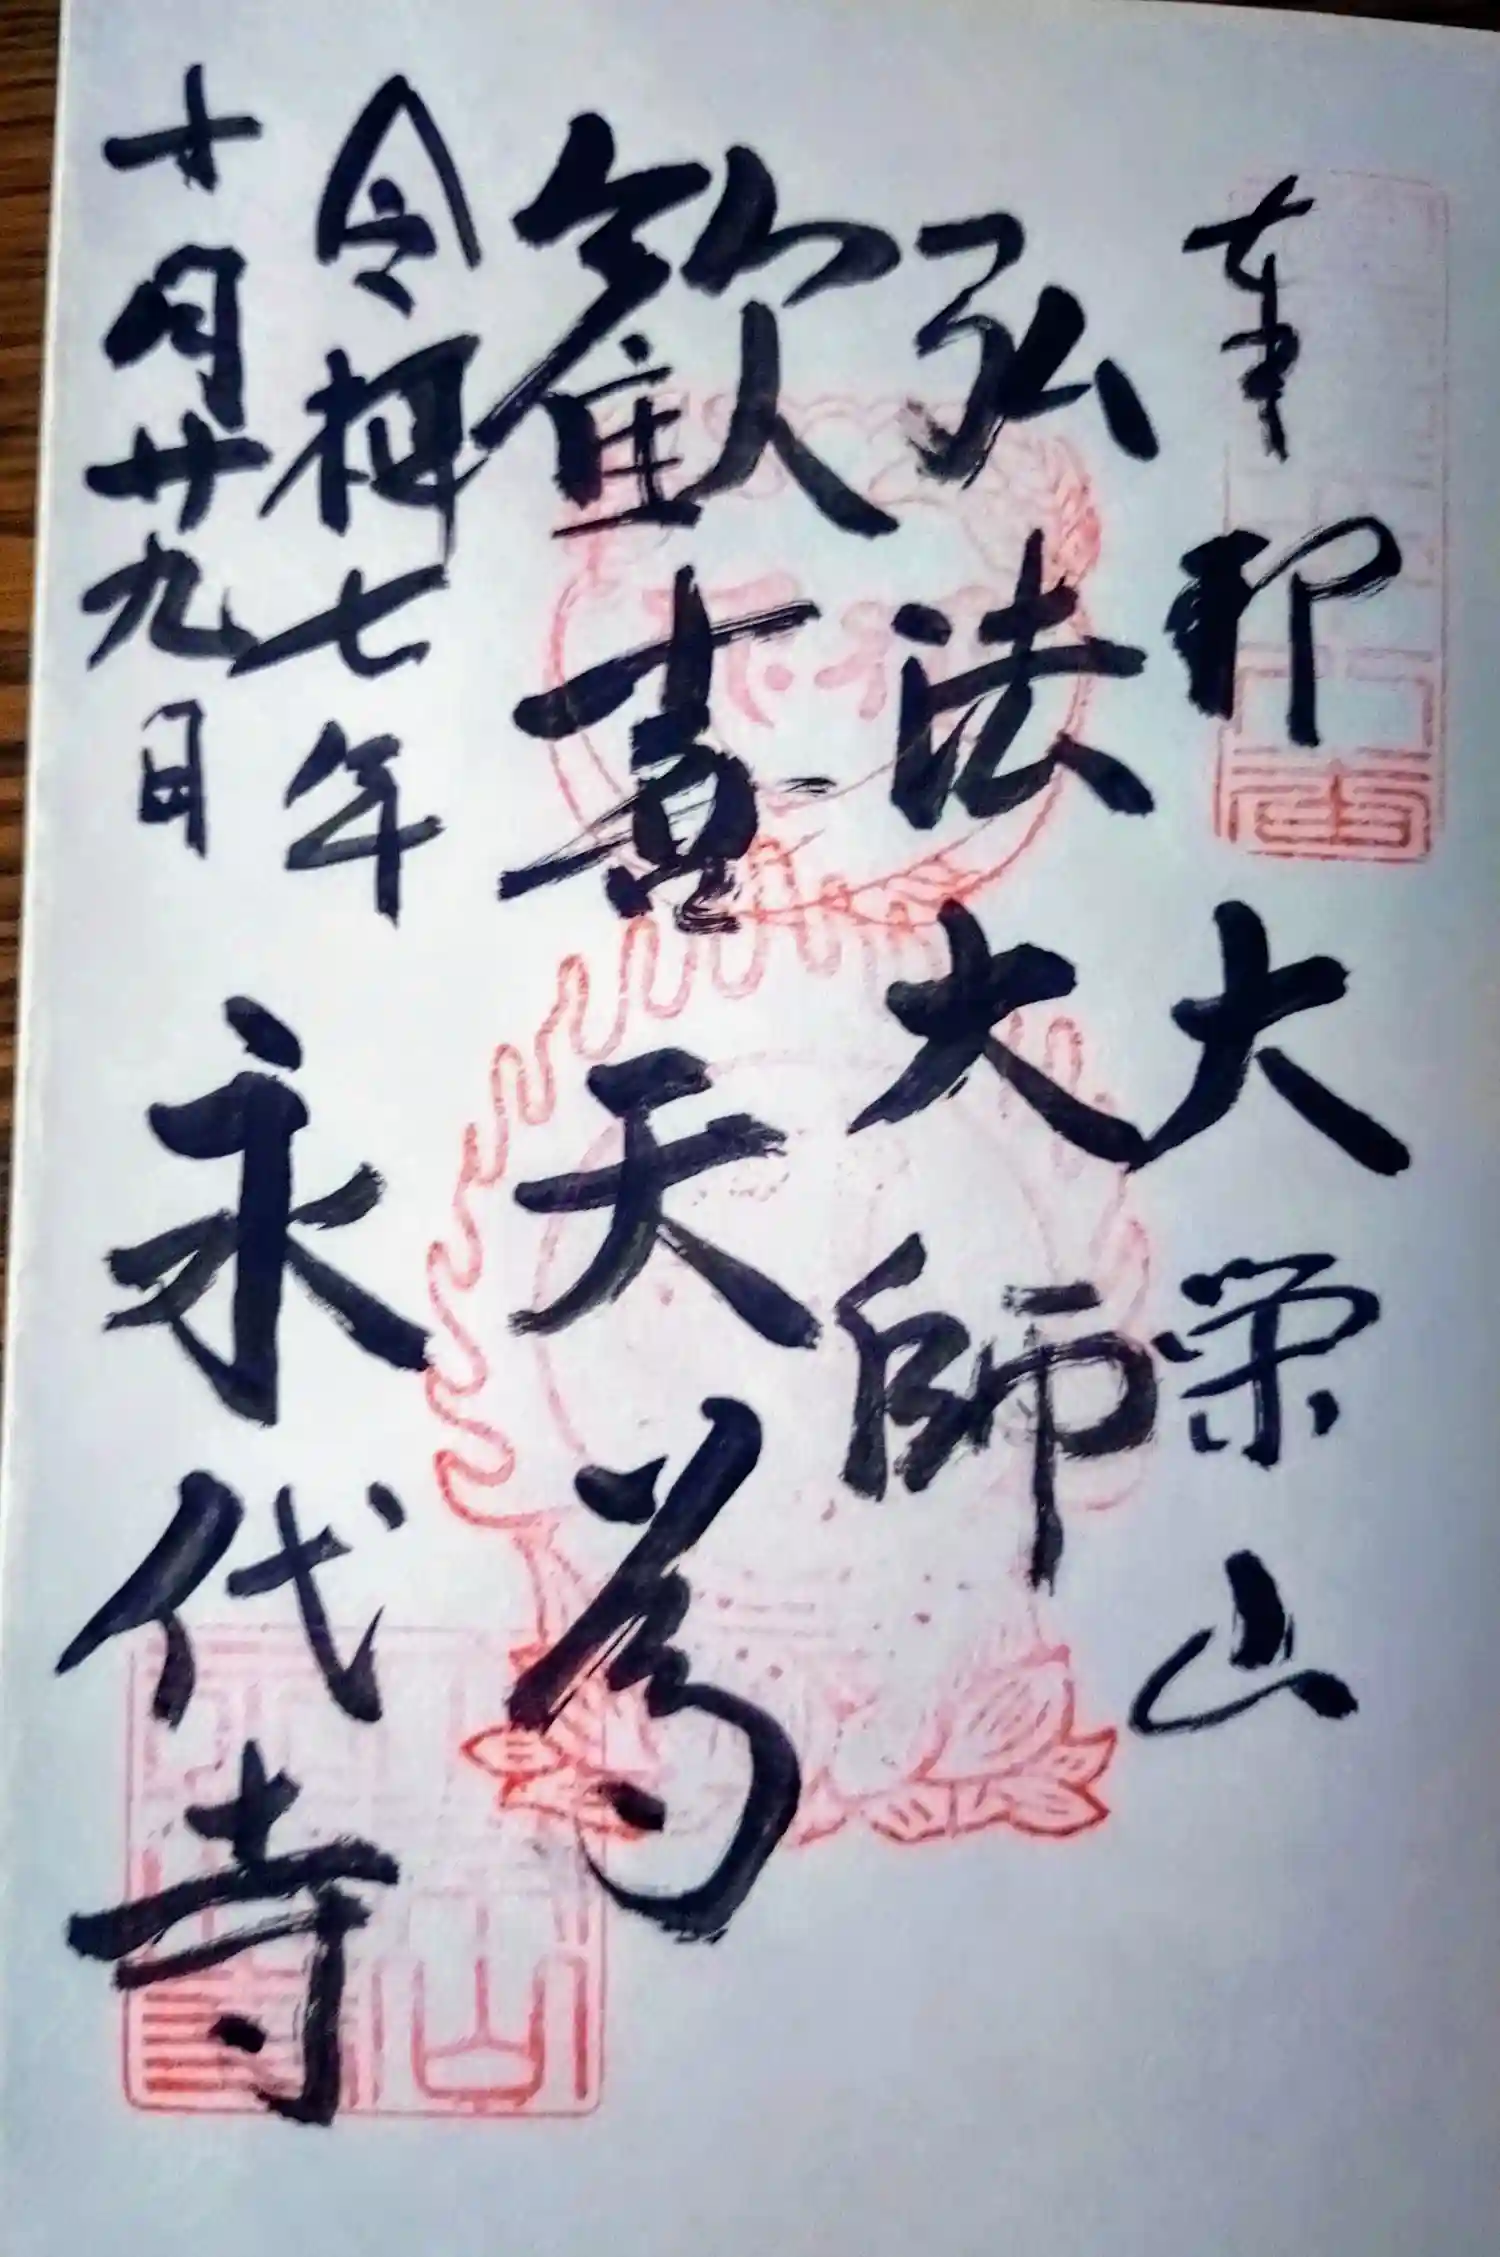 奉印 大栄山
弘法大師
歓喜天尊
令和七年
十月廿九日
永代寺